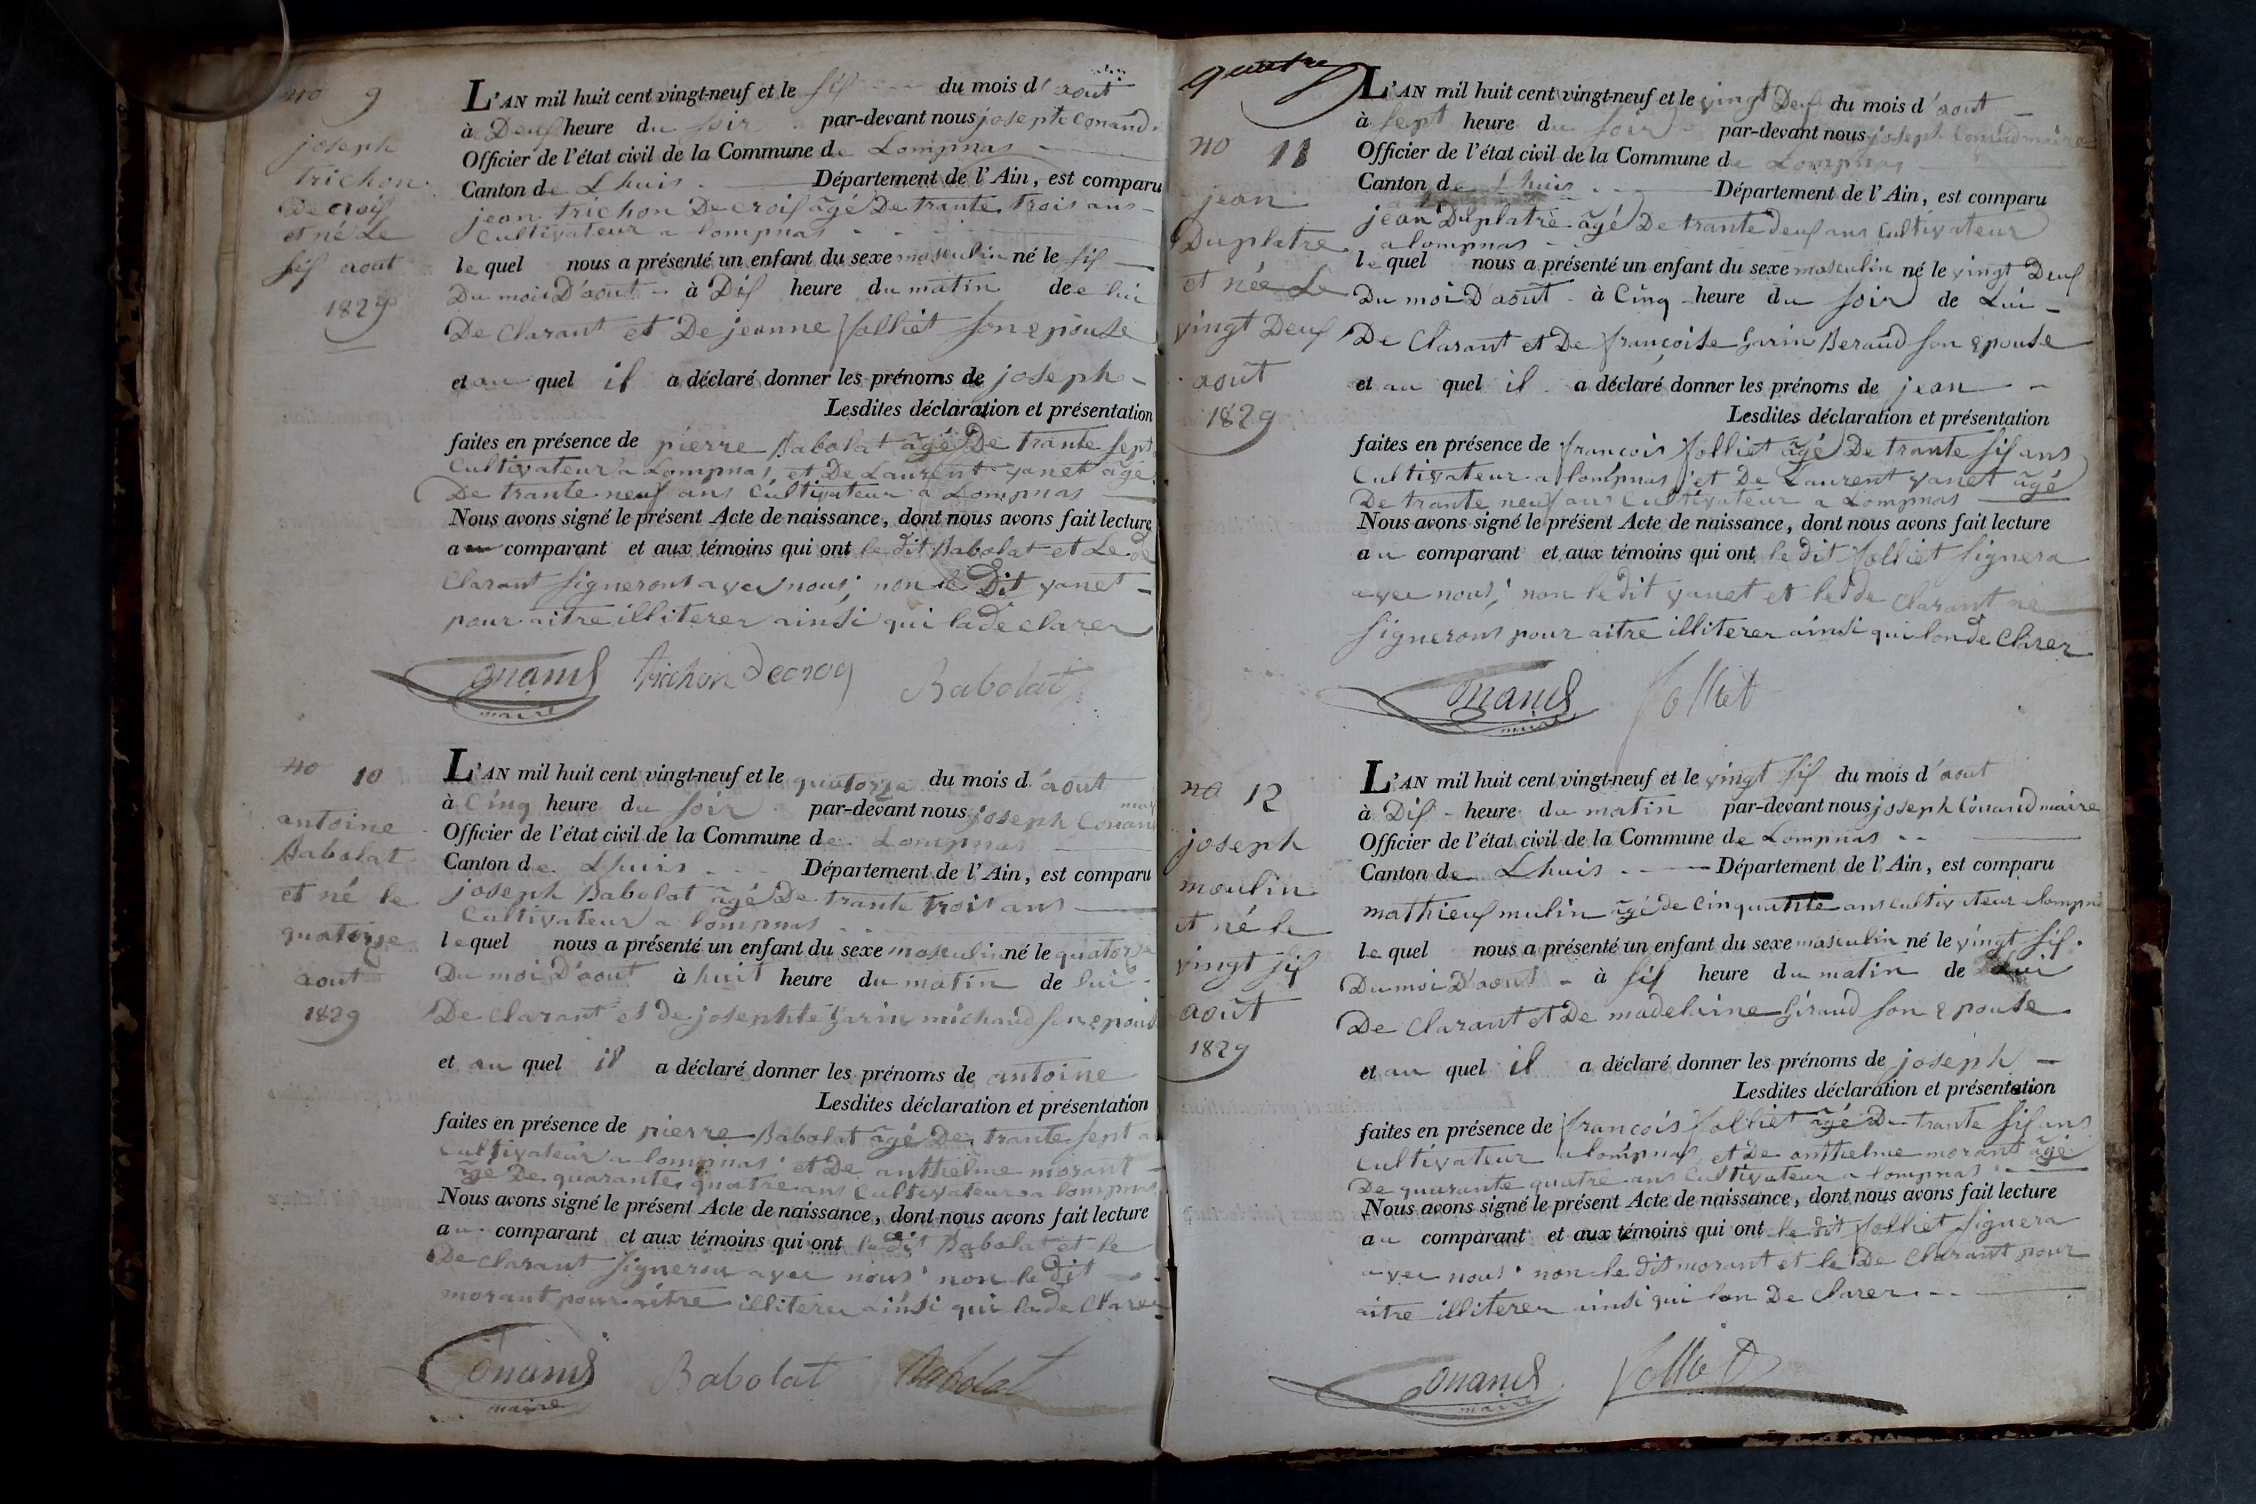 no 9
joseph
trichon
Decroif
et né Le
sif aout
1829
L'AN mil huit cent vingt-neuf et le sif du mois d'aout
à Deuf heure du soir par-devant nous joseph Conand
Officier de l'état civil de la Commune de Lompnas
Canton de Lhuis Département de l'Ain, est comparu
jean trichon Decroif âgé De trante trois ans
Cultivateur a lompnas
lequel nous a présenté un enfant du sexe masculin né le sif
Du mois D'aout à Dif heure du matin de lui
De Clarant et De jeanne folliet son epouse
et au quel il a déclaré donner les prénoms de joseph
Lesdites déclaration et présentation
faites en présence de pierre Babolat âgé De trante sept
Cultivateur a Lompnas et De Laurent yanet âgé
De trante neuf ans Cultivateur a Lompnas
Nous avons signé le présent Acte de naissance, dont nous avons fait lecture
au comparant et aux témoins qui ont le dit Babolat et Le de
Clarant signerons avec nous, non le Dit yanet
pour aitre illiterer ainsi qui la de clarer
Conand trichon Decroy Babolat
maire
no 10
antoine
Babolat
et né le
quatorze
aout
1829
L'AN mil huit cent vingt-neuf et le quatorze du mois d'aout
à Cinq heure du soir par-devant nous joseph Conand
Officier de l'état civil de la Commune de Lompnas
Canton de Lhuis Département de l'Ain, est comparu
joseph Babolat âgé De trante trois ans
Cultivateur a lompnas
lequel nous a présenté un enfant du sexe masculin né le quatorze
Du moi D'aout à huit heure du matin de lui
De Clarant et de josephte Garin michaud son epouse
et au quel il a déclaré donner les prénoms de antoine
Lesdites déclaration et présentation
faites en présence de pierre Babolat âgé De trante sept a
Cultivateur a lompnas et De anthelme morant
âgé De quarante quatre ans Cultivateur a lompnas
Nous avons signé le présent Acte de naissance, dont nous avons fait lecture
au comparant et aux témoins qui ont le dit Babolat et le
De Clarant signeron avec nous non le dit
morant pour aitre illiterer ainsi qui la de Clarer
Conand Babolat Babolat
maire
quatre
no 11
jean
Duplatre
et née Le
vingt Deuf
août
1829
L'AN mil huit cent vingt-neuf et le vingt Deuf du mois d'aout
à sept heure du soir par-devant nous joseph Conand maire
Officier de l'état civil de la Commune de Lompnas
Canton de Lhuis Département de l'Ain, est comparu
jean Duplatre âgé De trante deuf ans Cultivateur
a lompnas
lequel nous a présenté un enfant du sexe masculin né le vingt Deuf
Du moi D'août à Cinq heure du soir de Lui
De Clarant et De françoise Garin Beraud son epouse
et au quel il a déclaré donner les prénoms de jean
Lesdites déclaration et présentation
faites en présence de françois folliet âgé De trante sif ans
Cultivateur a lompnas et De Laurent yanet âgé
De trante neuf ans Cultivateur a Lompnas
Nous avons signé le présent Acte de naissance, dont nous avons fait lecture
au comparant et aux témoins qui ont le dit folliet signera
avec nous, non le dit yanet et le de Clarant ne
signerons pour aitre illiterer ainsi qui lon de Clarer
Conand folliet
maire
no 12
joseph
moulin
et né le
vingt sif
août
1829
L'AN mil huit cent vingt-neuf et le vingt sif du mois d'aout
à Dif heure du matin par-devant nous joseph Conand maire
Officier de l'état civil de la Commune de Lompnas
Canton de Lhuis Département de l'Ain, est comparu
mathieuf mulin âgé de cinquante ans cultivateur a lompnas
lequel nous a présenté un enfant du sexe masculin né le vingt sif
Du moi D'aout à sif heure du matin de Lui
De Clarant et De madelaine Giraud son epouse
et au quel il a déclaré donner les prénoms de joseph
Lesdites déclaration et présentation
faites en présence de françois folliet âgé De trante sif ans
Cultivateur a lompnas et de anthelme morant âgé
De quarante quatre ans Cultivateur a lompnas
Nous avons signé le présent Acte de naissance, dont nous avons fait lecture
au comparant et aux témoins qui ont le dit folliet signera
avec nous non le dit morant et le De Clarant pour
aitre illiterer ainsi qui lon De Clarer
Conand folliet
maire